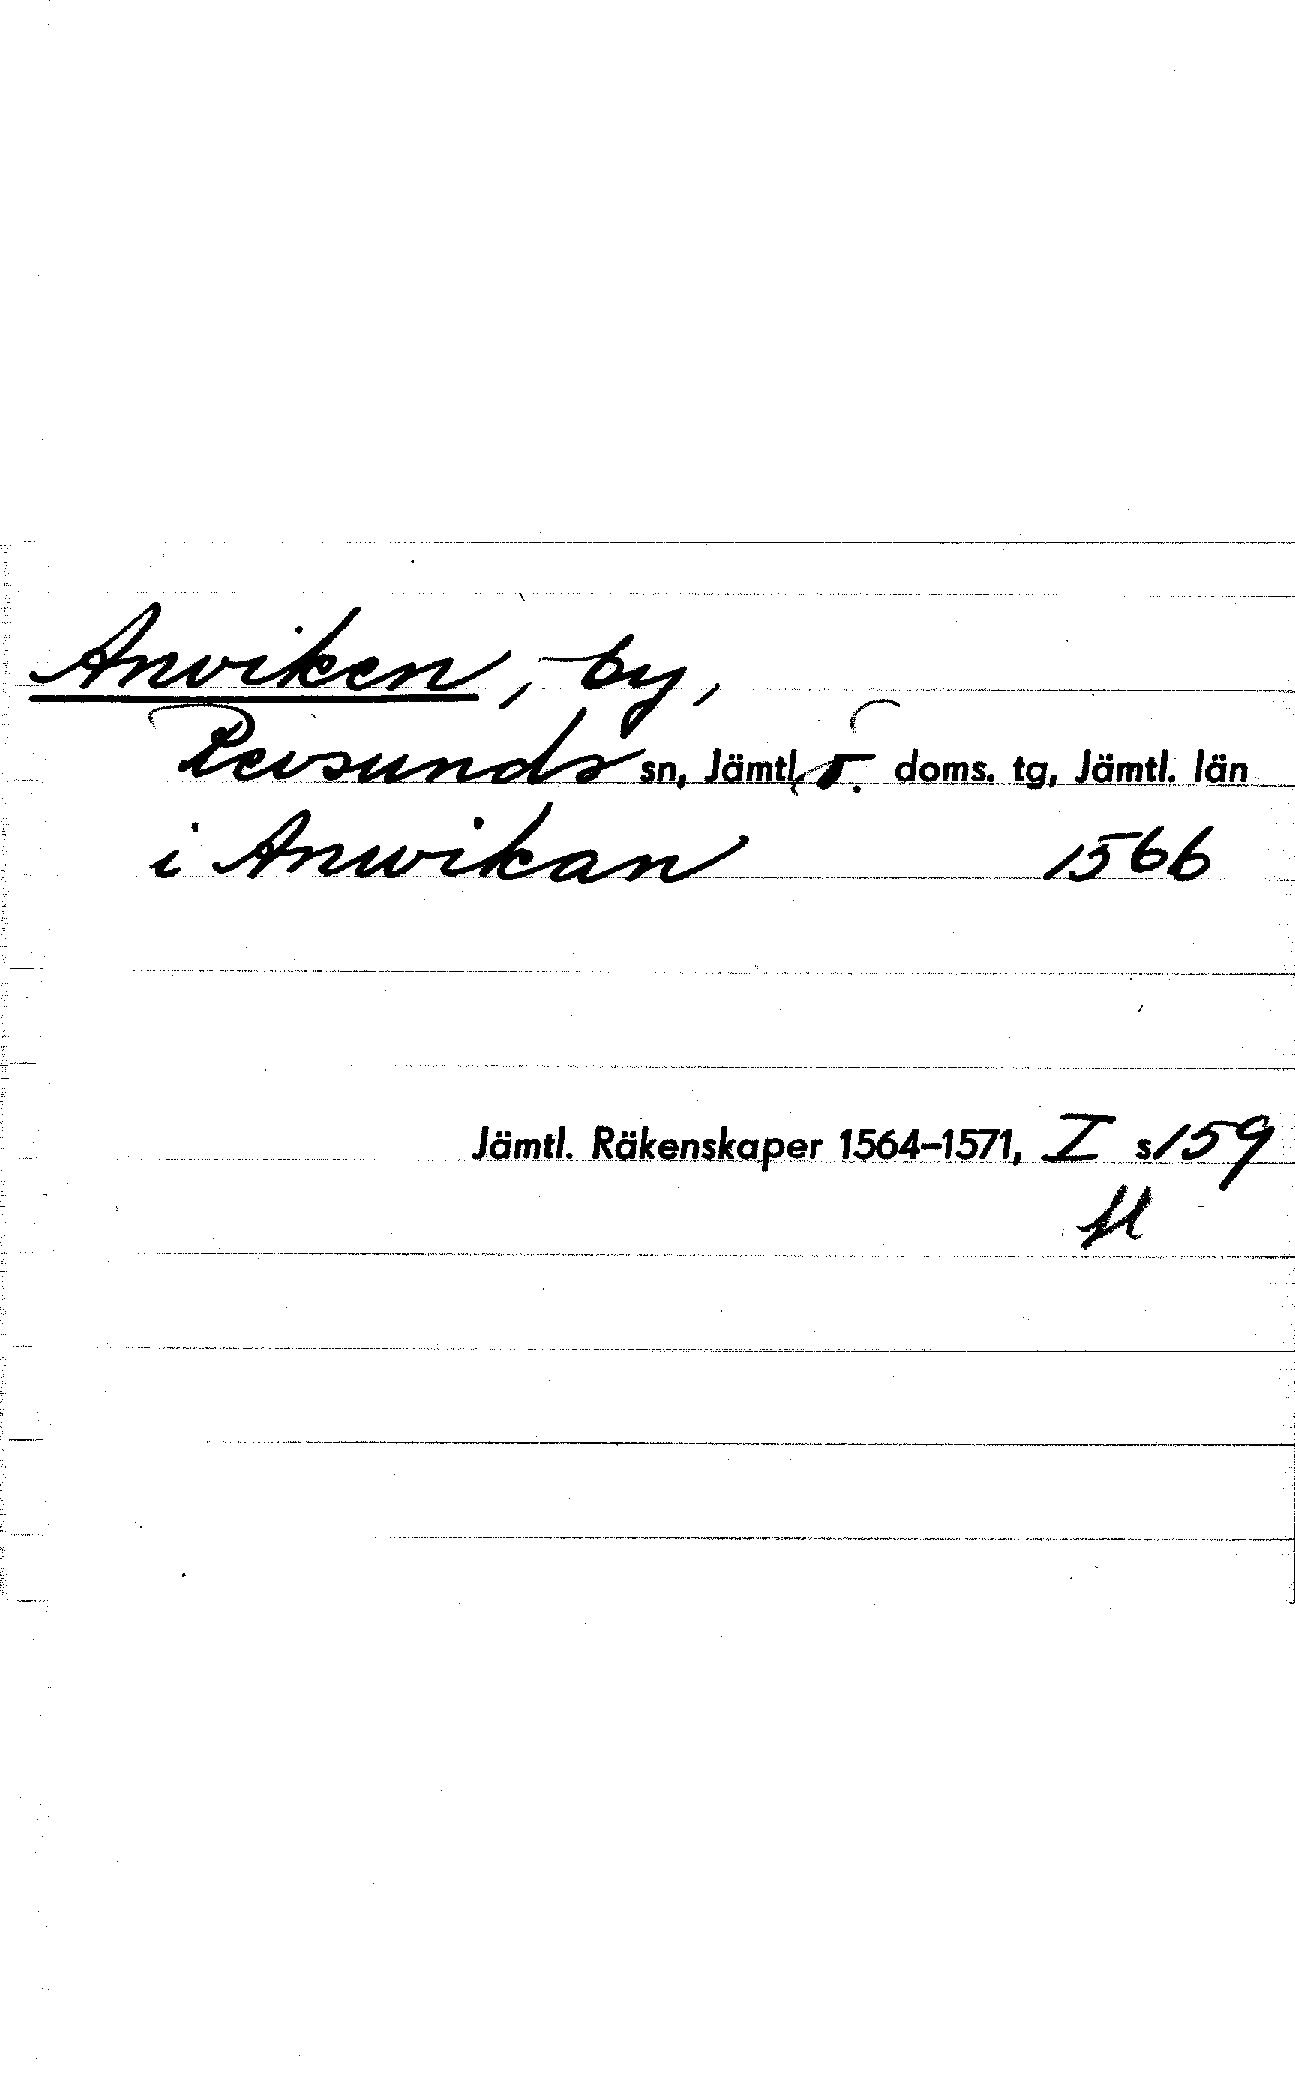 Anviken, by,
Revsunds sn, Jämtl. ö. doms. tg, Jämtl. län
i Anwikan 1566
Jämtl. Räkenskaper 1564–1571, I s 159
fl